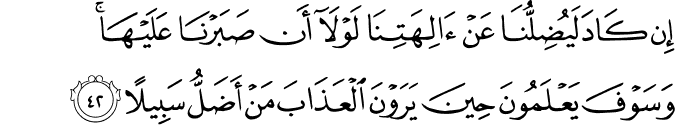 إِن كَادَ لَيُضِلُّنَا عَنْ ءَالِهَتِنَا لَوْلَآ أَن صَبَرْنَا عَلَيْهَا ۚ
وَسَوْفَ يَعْلَمُونَ حِينَ يَرَوْنَ ٱلْعَذَابَ مَنْ أَضَلُّ سَبِيلًا ٤٢